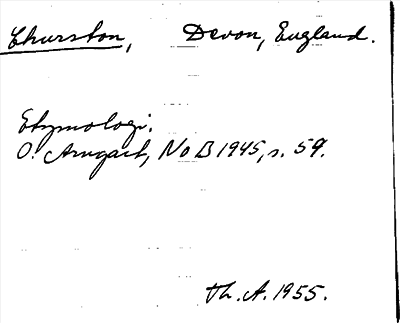 Churston, Devon, England.
Etymologi.
O. Arngart, NoB 1945, s. 59.
Th. A. 1955.